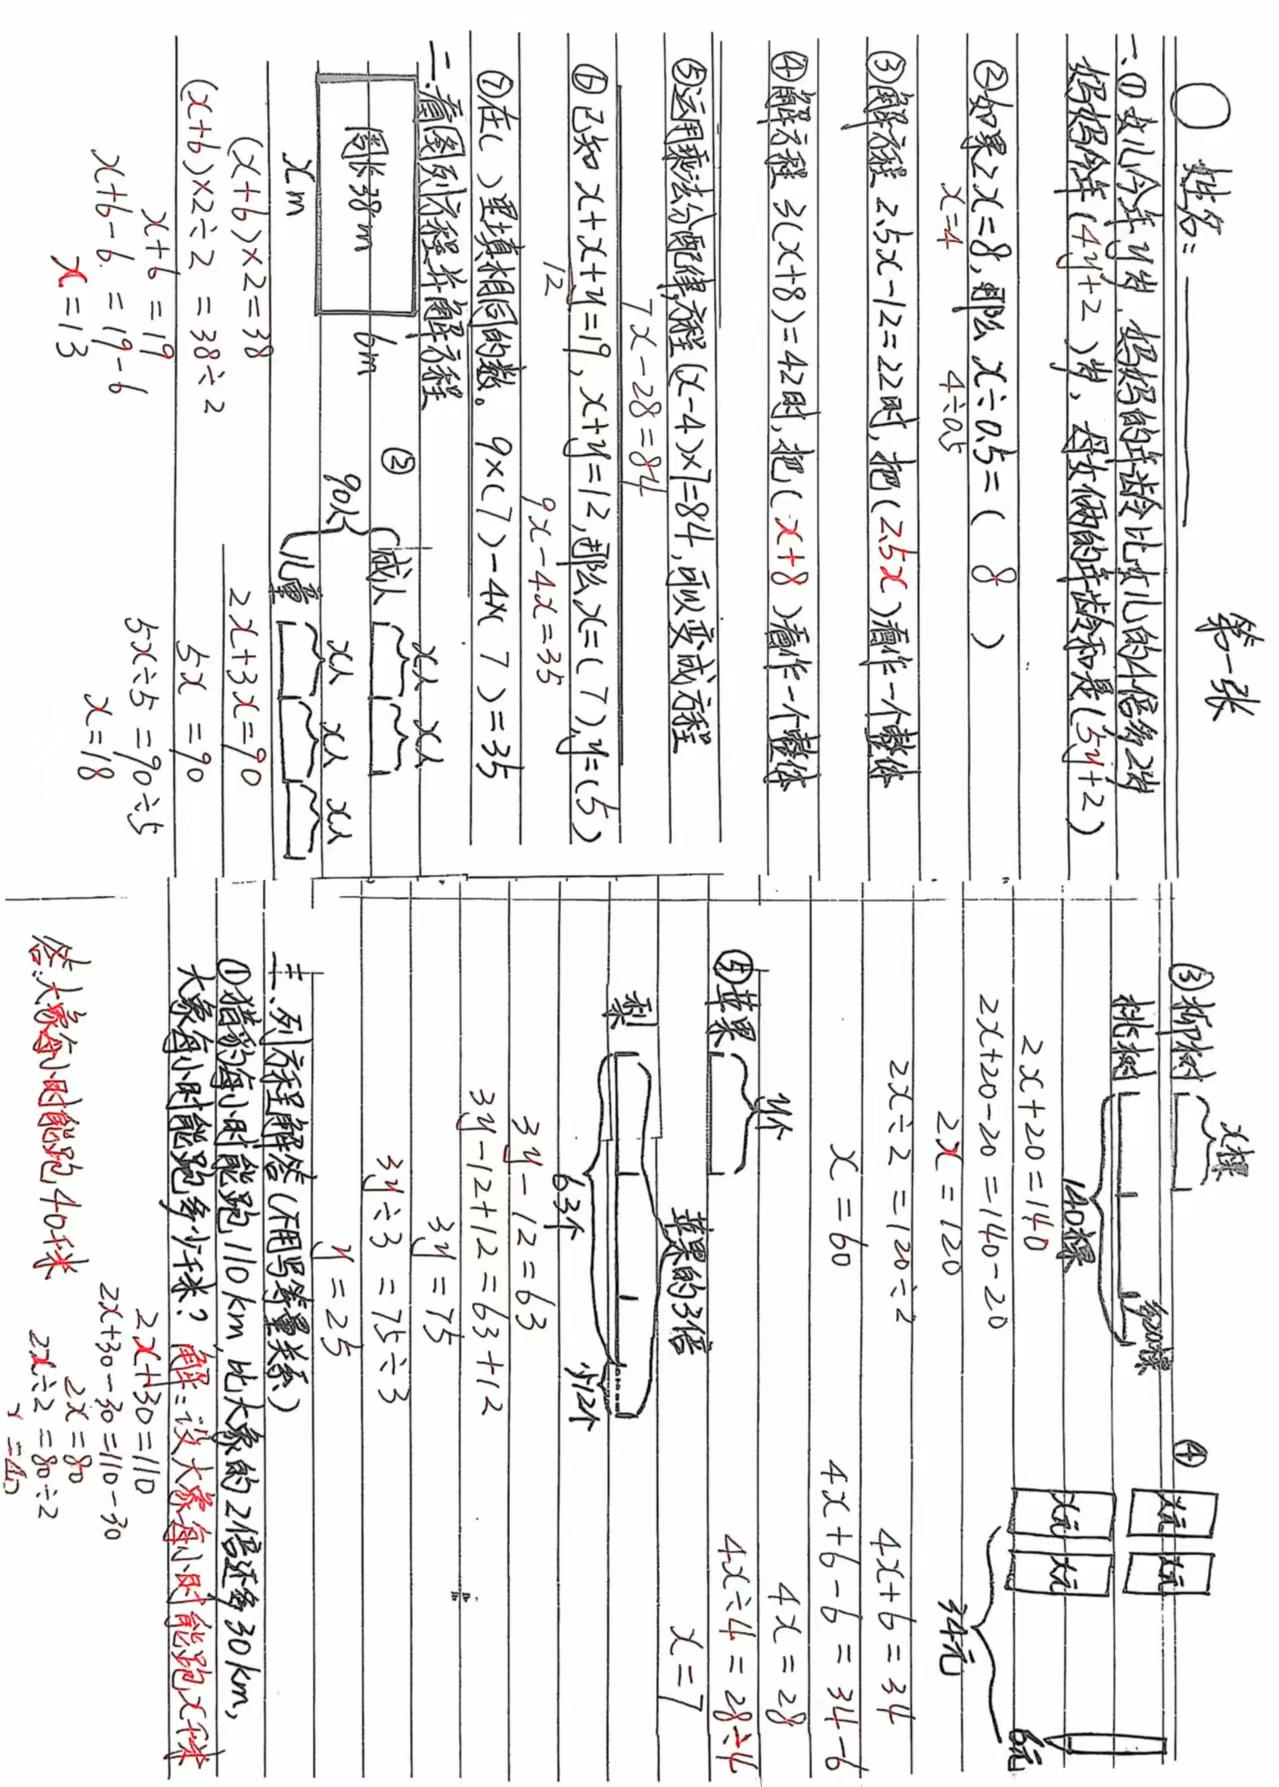 第一张
姓名:
一.①女儿今年y岁,妈妈的年龄比女儿的4倍多2岁
妈妈今年(4y+2)岁,母女俩的年龄和是(5y+2)
②如果2x=8,那么 x÷0.5=( 8 )
x=4 4÷0.5
③解方程 2.5x-12=22时,把(2.5x)看作一个整体
④解方程 3(x+8)=42时,把(x+8)看作一个整体
⑤运用乘法分配律,方程(x-4)×7=84,可以变成方程
7x-28=84
⑥已知x+x+y=19, x+y=12,那么x=(7),y=(5)
12
9x-4x=35
⑦在( )里填相同的数。 9×(7)-4×( 7 )=35
二.看图列方程并解方程
周长38m 6m
xm
(x+6)×2=38
(x+6)×2÷2 =38÷2
x+6 =19
x+6-6 =19-6
x=13
②
x人 x人
成人
90人
x人 x人 x人
儿童
2x+3x=90
5x =90
5x÷5 =90÷5
x=18
x棵
③柳树
多20棵
桃树
140棵
2x+20=140
2x+20-20 =140-20
2x =120
2x÷2 =120÷2
x =60
④
x元 x元
x元 x元
6元
34元
4x+6=34
4x+6-6 = 34-6
4x =28
4x÷4 =28÷4
x=7
y个
⑤苹果
苹果的3倍
梨
63个 少12个
3y-12=63
3y-12+12=63+12
3y=75
3y÷3 =75÷3
y=25
三.列方程解答(不用写等量关系)
①猎豹每小时能跑110km,比大象的2倍还多30km,
大象每小时能跑多少千米? 解:设大象每小时能跑x千米
2x+30=110
2x+30-30=110-30
2x=80
2x÷2 =80÷2
x =40
答:大象每小时能跑40千米